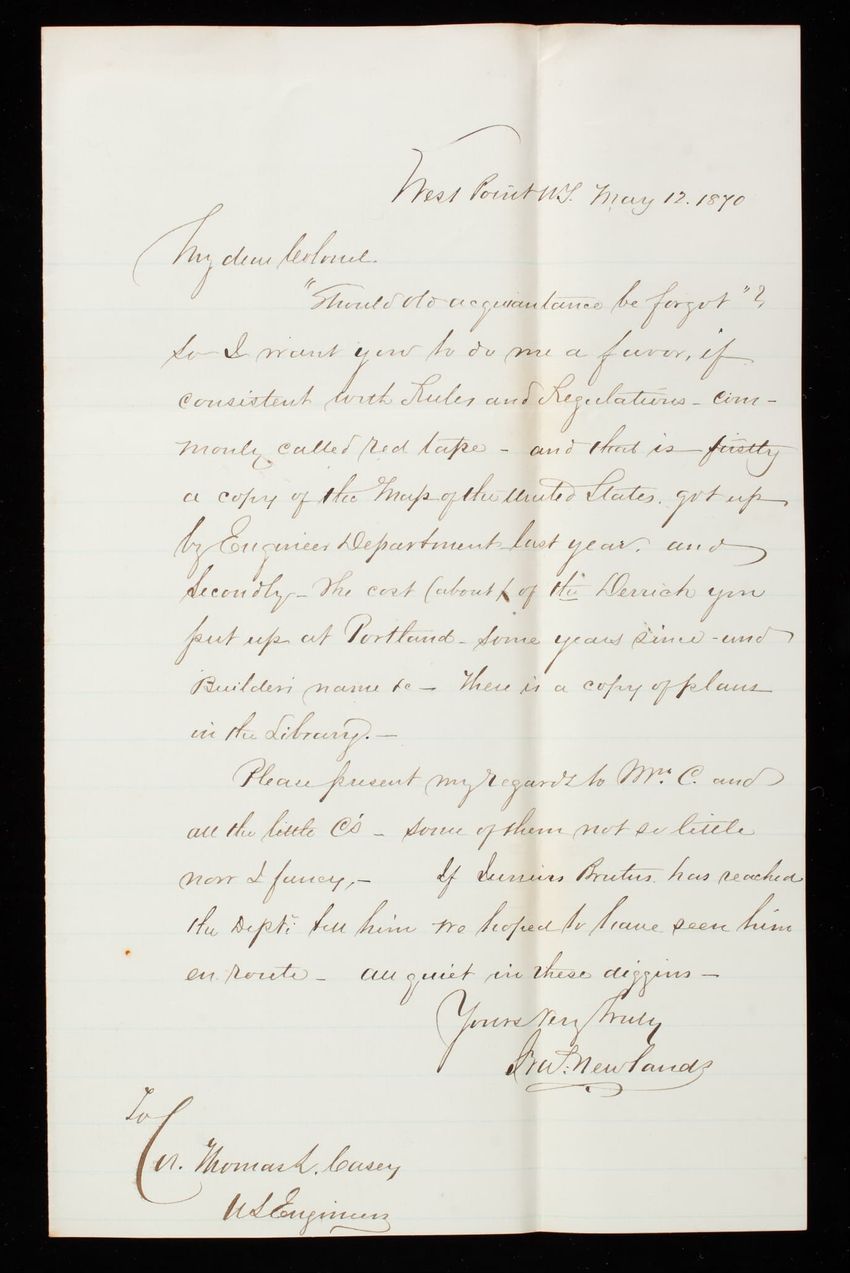 West Point N.Y. May 12. 1870
My dear Colonel.
"Should old acquaintance be forgot"?
So I want you to do me a favor, if
consistent with Rules and Regulations - com-
monly called red tape - and that is firstly
a copy of the Map of the United States. got up
by Engineer Department last year. and
Secondly - The cost (about) of the Derrick you
put up at Portland - some years since - and
Builders name &c - There is a copy of plans
in the Library. -
Please present my regards to Mrs. C. and
all the little C's - some of them not so little
now I fancy, - If Junius Brutus has reached
the Dept: tell him we hoped to have seen him
en route - all quiet in these diggins -
Yours Very Truly
W. Newlands
To
Col. Thomas L. Casey
US Engineers